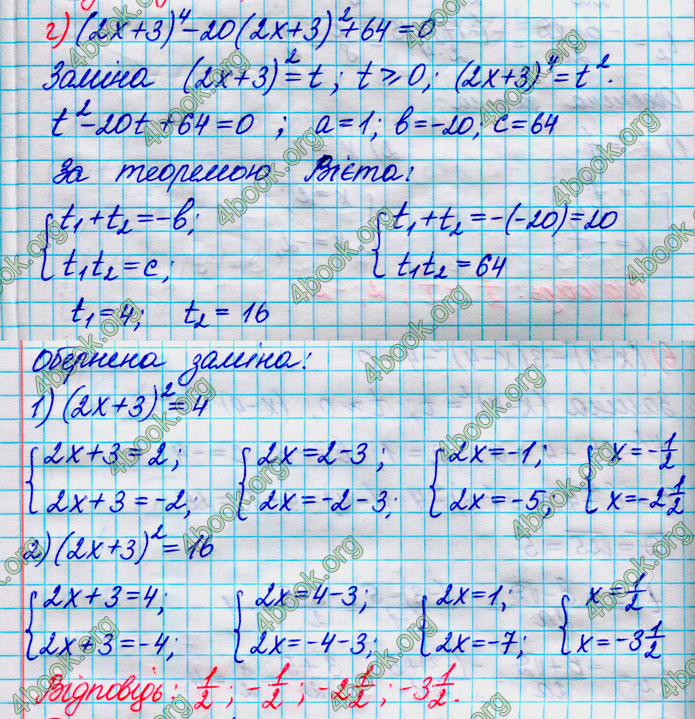 г) (2x+3)⁴-20(2x+3)²+64=0
Заміна (2x+3)²=t; t≥0; (2x+3)⁴=t².
t²-20t+64=0 ; a=1; в=-20; c=64
За теоремою Вієта:
{t₁+t₂=-в; {t₁+t₂=-(-20)=20
t₁t₂=c; t₁t₂=64
t₁=4; t₂=16
Обернена заміна:
1) (2x+3)²=4
{2x+3=2; {2x=2-3; {2x=-1; {x=-1/2
2x+3=-2; 2x=-2-3; 2x=-5; x=-2 1/2
2) (2x+3)²=16
{2x+3=4; {2x=4-3; {2x=1; {x=1/2
2x+3=-4; 2x=-4-3; 2x=-7; x=-3 1/2
Відповідь: 1/2; -1/2; -2 1/2; -3 1/2.
4book.org